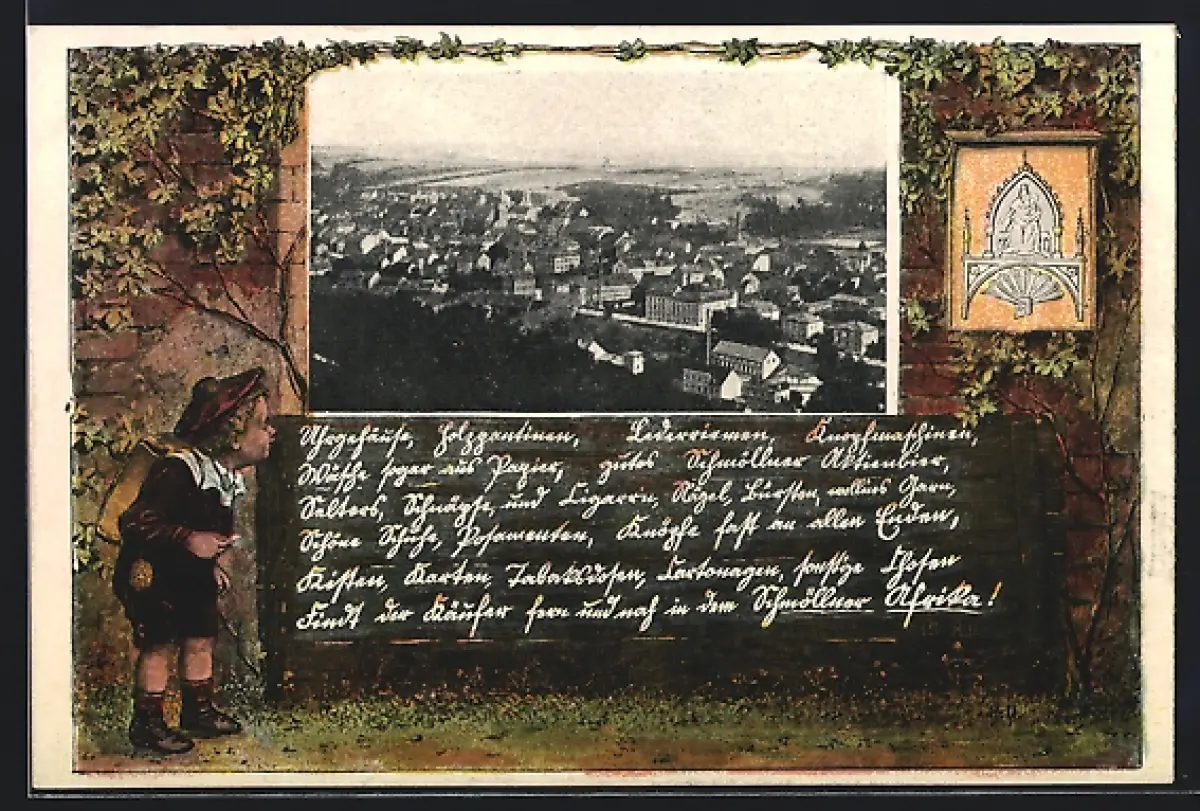 Uhrgehäuse, Holzpantinen, Lederriemen, Knopfmaschinen,
Wäsche sogar aus Papier, gutes Schmöllner Aktienbier,
Selters, Schnäpse, und Cigarrn, Nägel, Bürsten, wollnes Garn,
Schöne Schuhe, Posamenten, Knöpfe fast an allen Enden,
Kisten, Karten, Tabaksdosen, Cartonagen, sonstige Chosen
Findt der Käufer fern und nah in dem Schmöllner Afrika!